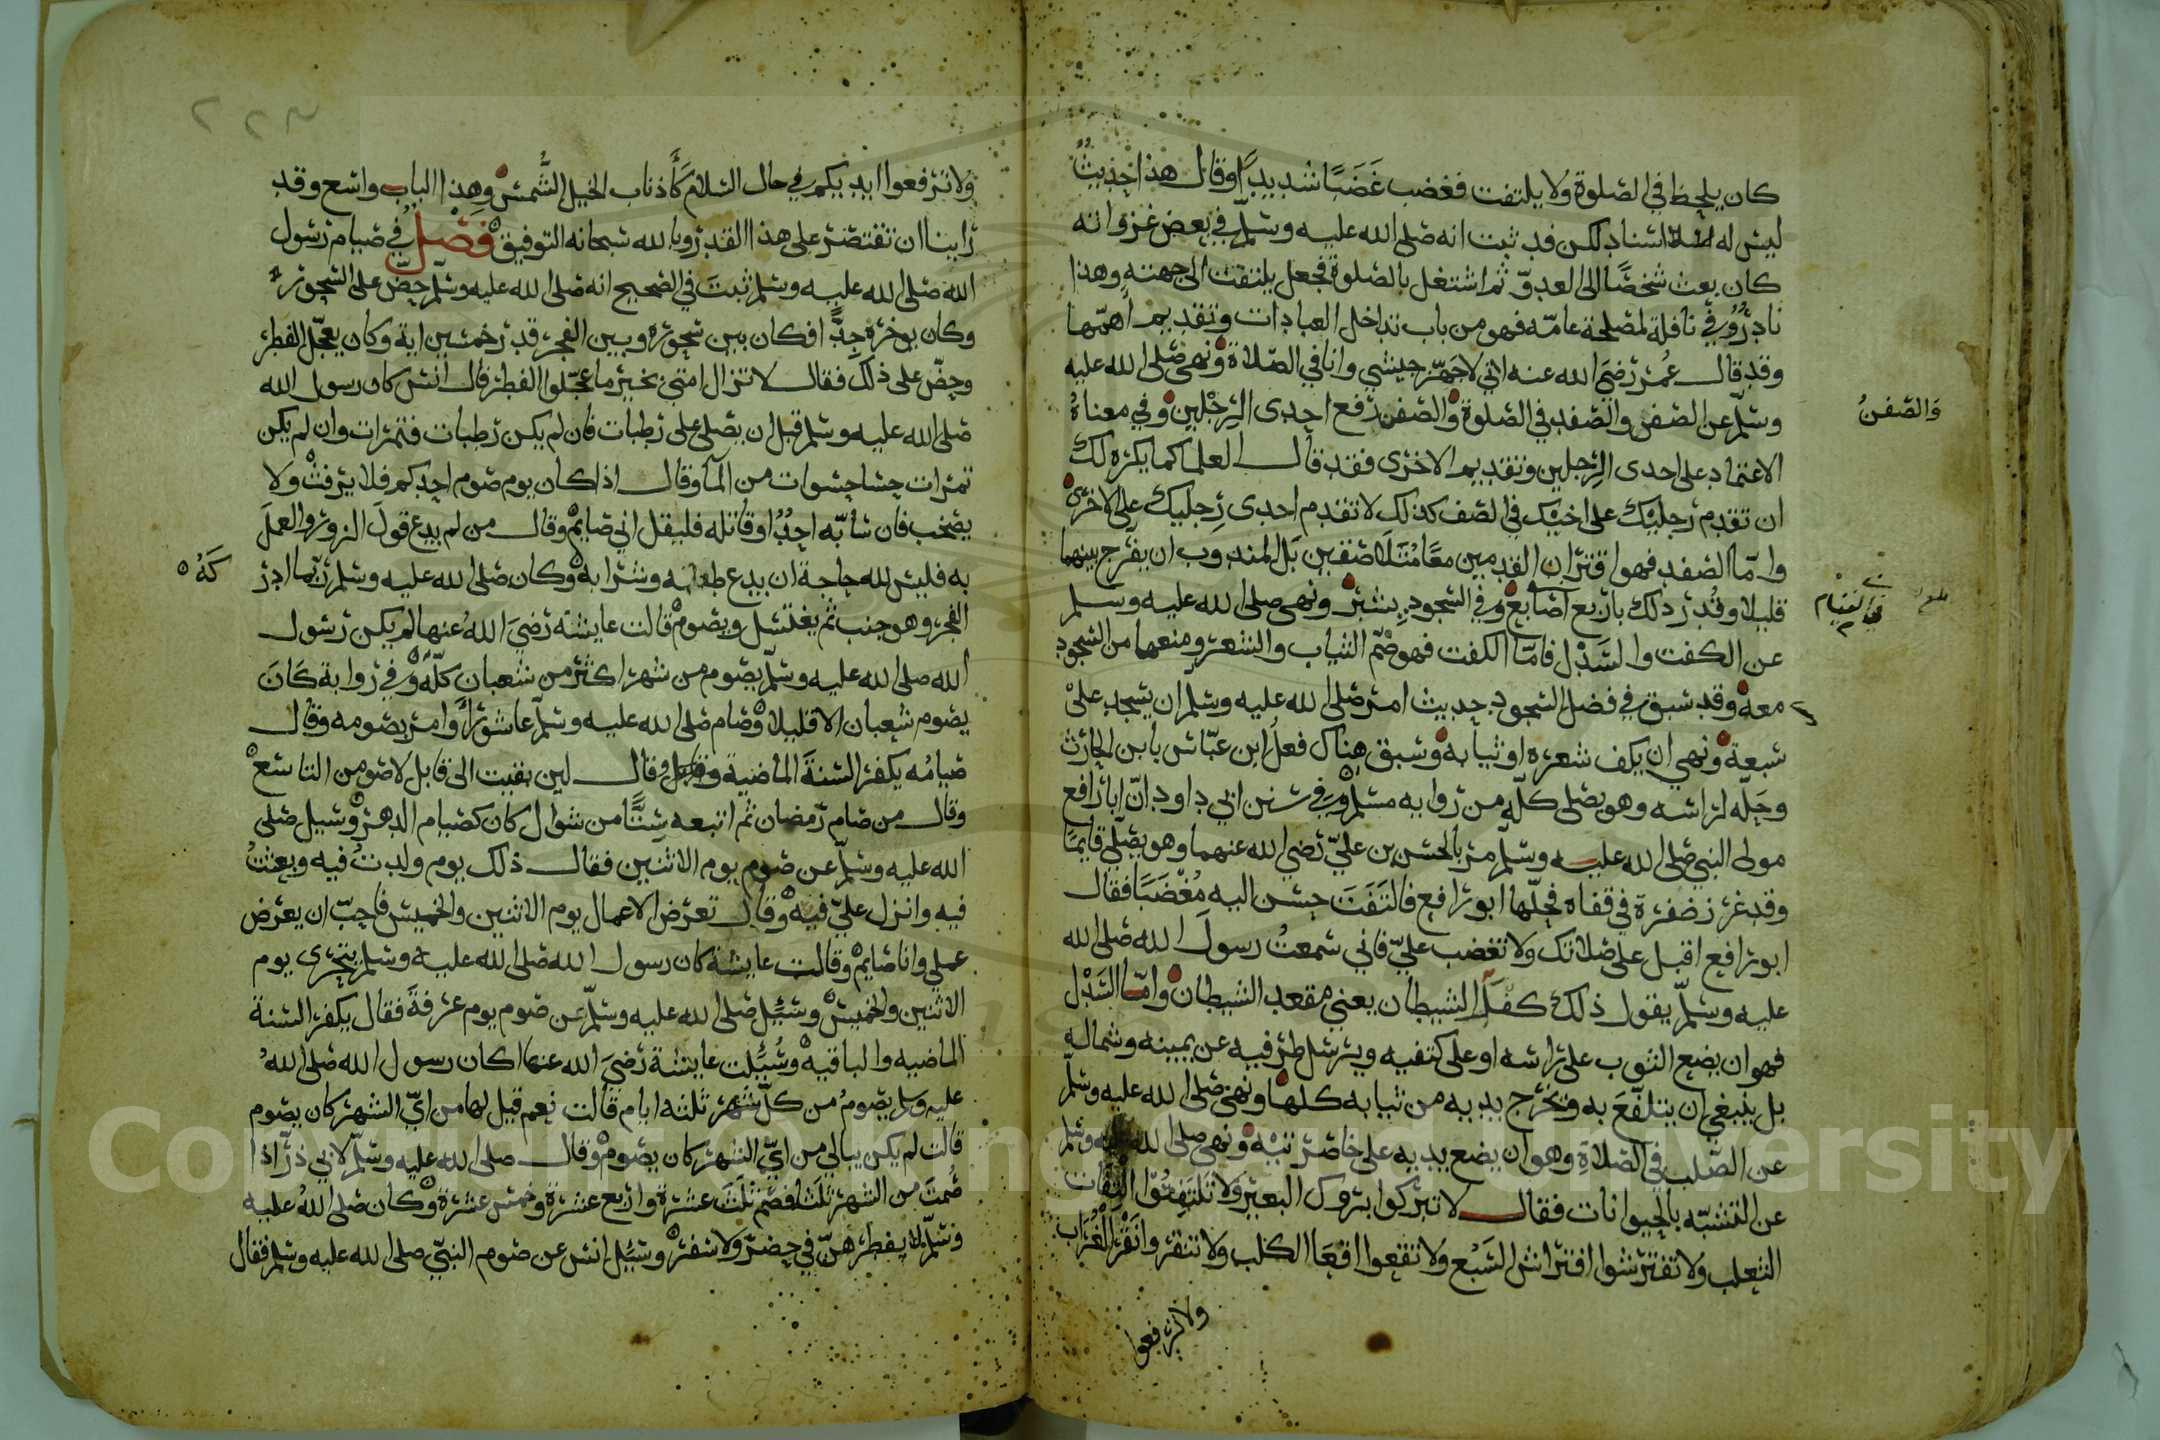 كان يلحظ في الصلوة ولا يلتفت فغضب غَضَبًا شديدًا وقال هذا حديثٌ
ليس له اسناد لكن قد ثبت انه صلى الله عليه وسلّم في بعض غزواته
كان بعث شخصًا الى العدوّ ثم اشتغل بالصلوة فجعل يلتفت الى جهته وهذا
نادرٌ وفي نافلة لمصلحة عامّه فهو من باب تداخل العبادات وتقديم أهمّها
وقد قال عُمر رضي الله عنه اني لاجهّز جيشي وانا في الصّلاة ونهى صلى الله عليه
وسلّم عن الصفن والصّفد في الصلوة والصّفن رفع احدى الرِجْلين وفي معناهُ
الاعتماد على احدى الرِجلين وتقديم الاخرى فقد قال العلما كما يكره لك
ان تقدم رجليْك على اخيْك في الصف كذلك لا تقدم احدى رِجليك على الاخرى
وامّا الصّفد فهو اقتران القدمين معًا مُتلاصقين بَل المندوب ان يفرّج بينهما
قليلا وقُدر ذلك باربع اصابع وفي السّجود بشبر ونهى صلى الله عليه وسلم
عن الكفت والسَدْل فامّا الكفت فهو ضّم الثياب والشعر ومنعهما من السّجود
معه وقد سبق في فضل السّجود حديث امر صلى الله عليه وسلم ان يسجد على
سبعة ونهي ان يكف شعره او ثيابه وسبق هناك فعلُ ابن عبّاس بابن الحارث
وحَلّه لراسه وهو يصلى كلّه من روايه مسلم وفي سنن ابي داود انّ ابا رافع
مولى النبي صلى الله عليه وسلم مر بالحسن بن عليّ رضي الله عنهما وهو يصلّي قايمًا
وقد غرز ضفرة في قفاه فحَلّها ابو رافع فالتَفَتَ حسن اليه مُغْضَبًا فقال
ابو رافع اقبل على صلاتك ولا تغضب عليّ فاني سمعتُ رسولَ الله صلى الله
عليه وسلّم يقول ذلك كفل الشيطان يعني مقعد الشيطان وامّا السَدْل
فهو ان يضع الثوب على راسه او على كتفيه ويرسل طرفيه عن يمينه وشماله
بل ينبغي ان يتلفّعَ به ويخرج يديه من ثيابه كلها ونهى صلى الله عليه وسلّم
عن الصّلب في الصّلاةِ وهو ان يضع يديه على خاصرتيْه ونهى صلى الله عليه وسلم
عن التشبّه بالحيوانات فقال لا تبركوا بروك البعير ولا تلتفتُوا التفات
الثعلب ولا تفترشوا افتراش السَبُع ولا تقعوا اقعَا الكلب ولا تنقروا نقْر الغُرَاب
ولا ترفعوا
والصّفنُ
ولا ترفعوا ايديكم في حال السّلام كأذناب الخيل الشُمس وهذا الباب واسع وقد
راينا ان نقتصر على هذا القدر وبالله سبحانه التوفيق فَصْلٌ في صيام رسول
الله صلى الله عليه وسلم ثبتَ في الصحيح انه صلى الله عليه وسلم حضّ على السّحور
وكان يوخره جِدًّا فكان بين سحوره وبين الفجر قدر خمسين اية وكان يعجّل الفطر
وحضّ على ذلك فقال لا تزال امتي بخير ما عجّلوا الفطر قال انس كان رسول الله
صلى الله عليه وسلم قبل ان يصلي على رطبات فان لم يكن رطبات فتمرات وان لم يكن
تمرات حسا حسوات من المآ وقال اذا كان يوم صوم احدكم فلا يرفثْ ولا
يصخب فان سابّه احدٌ او قاتله فليقل اني صايمٌ وقال من لم يدع قولَ الزور والعملَ
به فليس لله حاجة ان يدع طعامه وشرابه وكان صلى الله عليه وسلم ربما ادر
كَهُ
الفجر وهو جنب ثم يغتسل ويصومُ قالت عايشة رضيَ اللهُ عنها لم يكن رسول
الله صلى الله عليه وسلّم يصوم من شهر اكثر من شعبان كلّه وفي رواية كَانَ
يصوم شعبان الا قليلا وصام صلى الله عليه وسلّم عاشورا وامر بصومه وقال
صيامُه يكفر السّنةَ الماضية وقال لين بقيت الى قابل لاصومن التاسع
وقال من صام رمضان ثم اتبعه سِتًّا من شوال كان كصيام الدهر وسيل صلى
الله عليه وسلّم عن صوم يوم الاثنين فقال ذلك يوم ولدتُ فيه وبعثتُ
فيه وانزل عليّ فيه وقال تعرض الاعمال يوم الاثنين والخميس فاحبّ ان يعرض
عملي وانا صايمٌ وقالت عايشة كان رسول الله صلى الله عليه وسلم يتحرى يوم
الاثنين والخميس وسُيِّل صلى الله عليه وسلّم عن صوم يوم عرفةَ فقال يكفر السّنة
الماضيه والباقيه وسُيلت عايشة رضيَ الله عنها اكان رسول الله صلى اللهُ
عليه وسلم يصومُ من كلّ شهر ثلثه ايام قالت نعم قيل لها من ايّ الشهر كان يصوم
قالت لم يكن يبالي من ايّ الشهر كان يصوم وقال صلى الله عليه وسلّم لابي ذرّ اذا
صُمتَ من الشهر ثلثا فصُم ثلثَ عشرة واربع عشرة وخمس عشرة وكان صلى اللهُ عليه
وسلّم لا يفطرهنّ في حضرٍ ولا سفر وسُيل انس عن صوم النبيّ صلى الله عليه وسلم فقال
Copyright © King Saud University